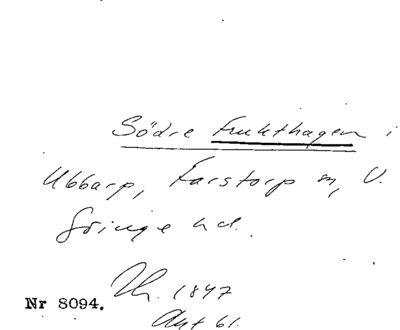 Södre Frukthagen i
Ubbarp, Farstorp sn, V.
Göinge hd.
Nr 8094. Th. 1847
Akt 61.